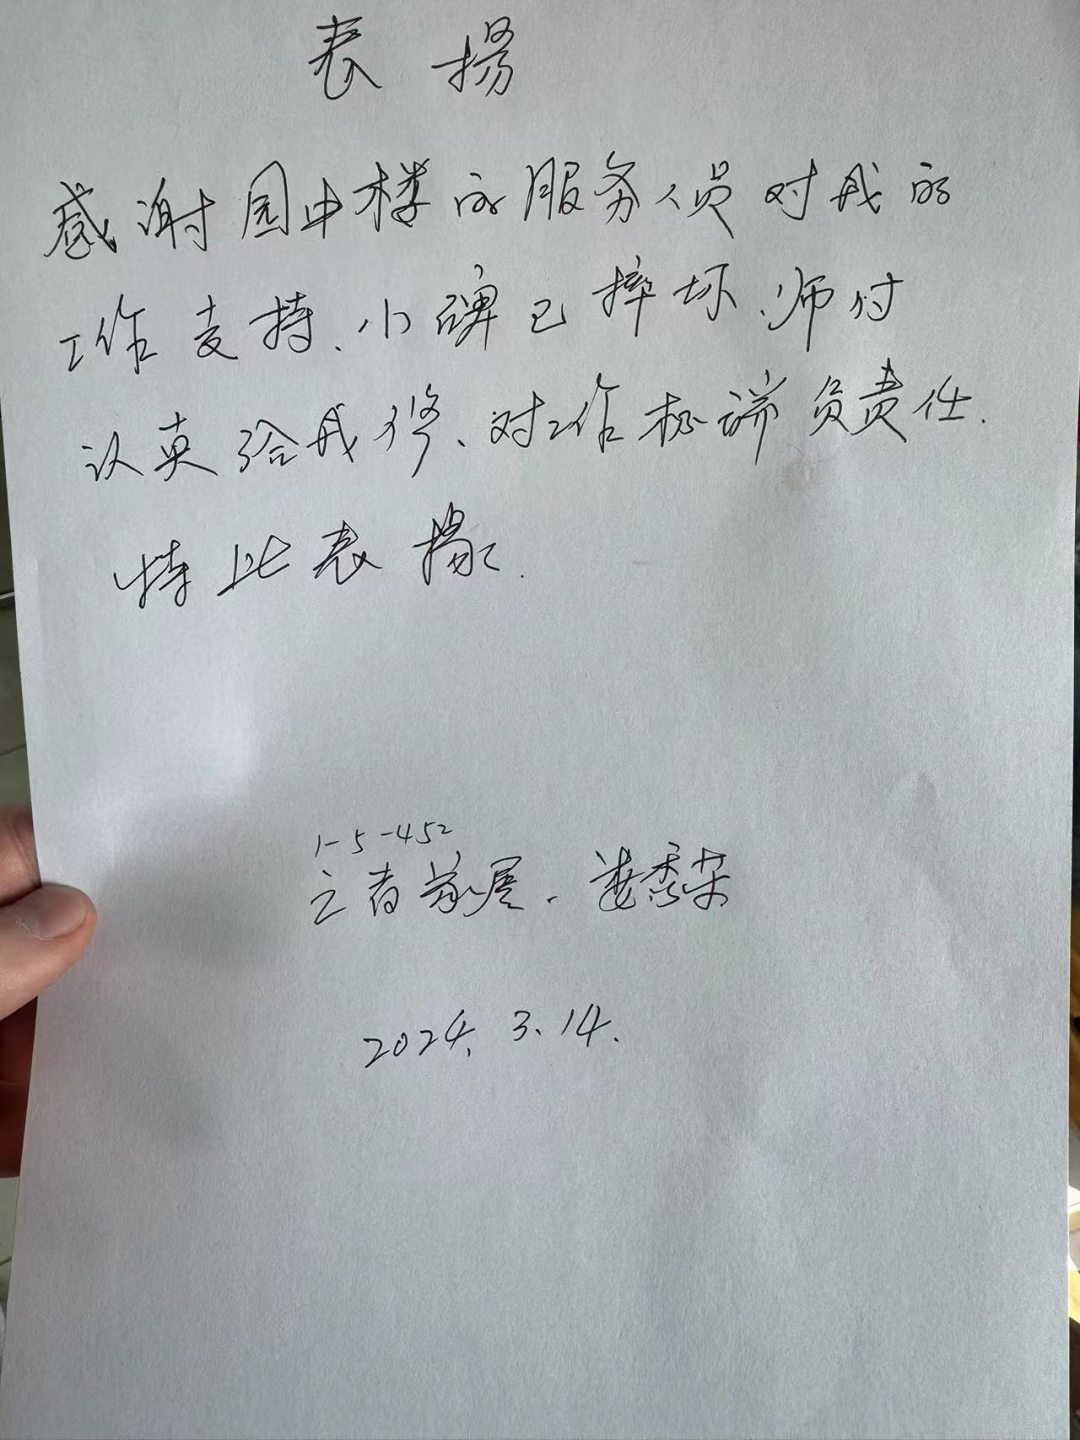 表揚
感谢园中楼的服务员对我的
工作支持、小牌已摔坏、师付
认真给我修、对工作极端负责任.
特此表揚.
1-5-452
王者家属.娄秀荣
2024.3.14.